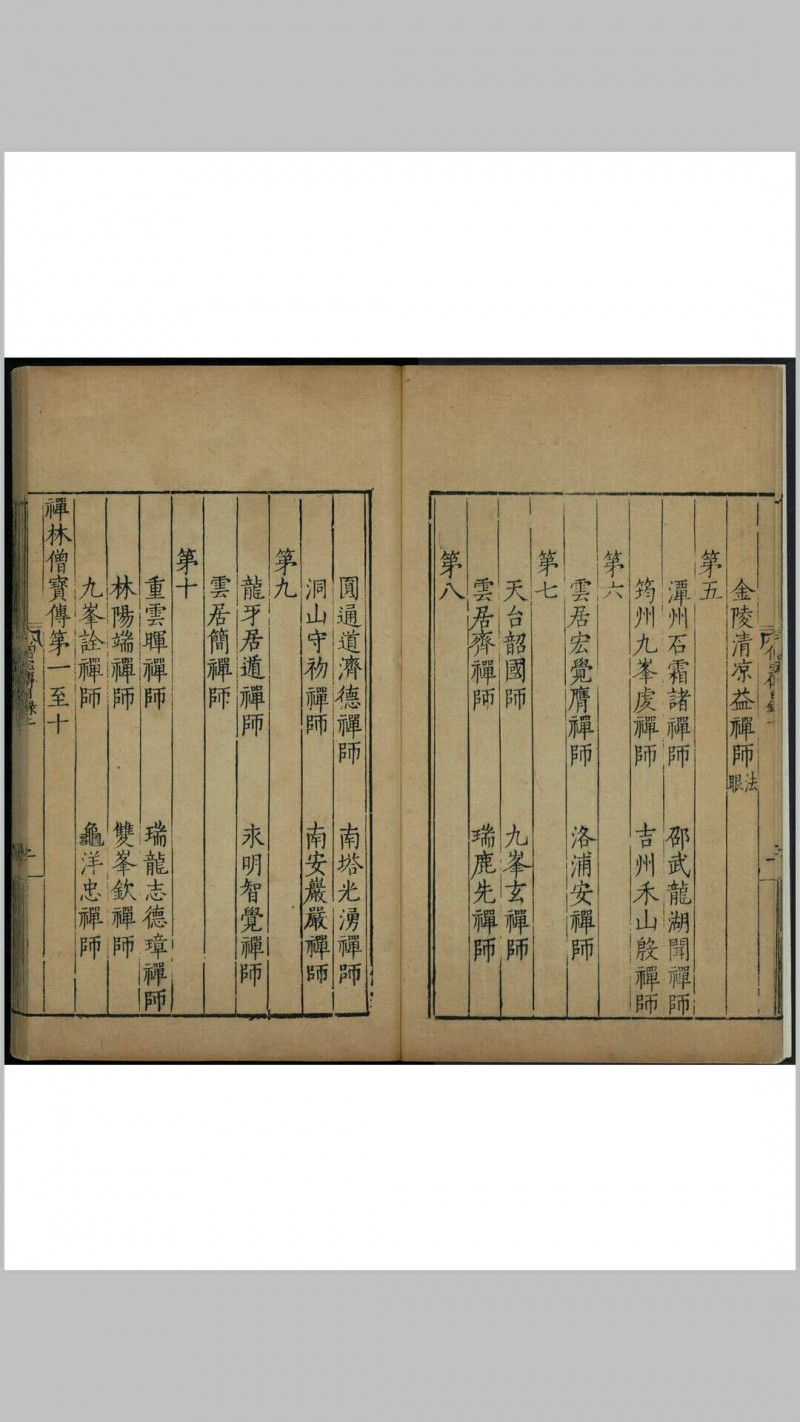 金陵清凉益禪師 法眼
第五
潭州石霜諸禪師 邵武龍湖聞禪師
筠州九峯虔禪師 吉州禾山殷禪師
第六
雲居宏覺膺禪師 洛浦安禪師
第七
天台韶國師 九峯玄禪師
雲居齊禪師 瑞鹿先禪師
第八
圓通道濟德禪師 南塔光湧禪師
洞山守初禪師 南安巖嚴禪師
第九
龍牙居遁禪師 永明智覺禪師
雲居簡禪師
第十
重雲暉禪師 瑞龍志德璋禪師
林陽端禪師 雙峯欽禪師
九峯詮禪師 龜洋忠禪師
禪林僧寶傳第一至十